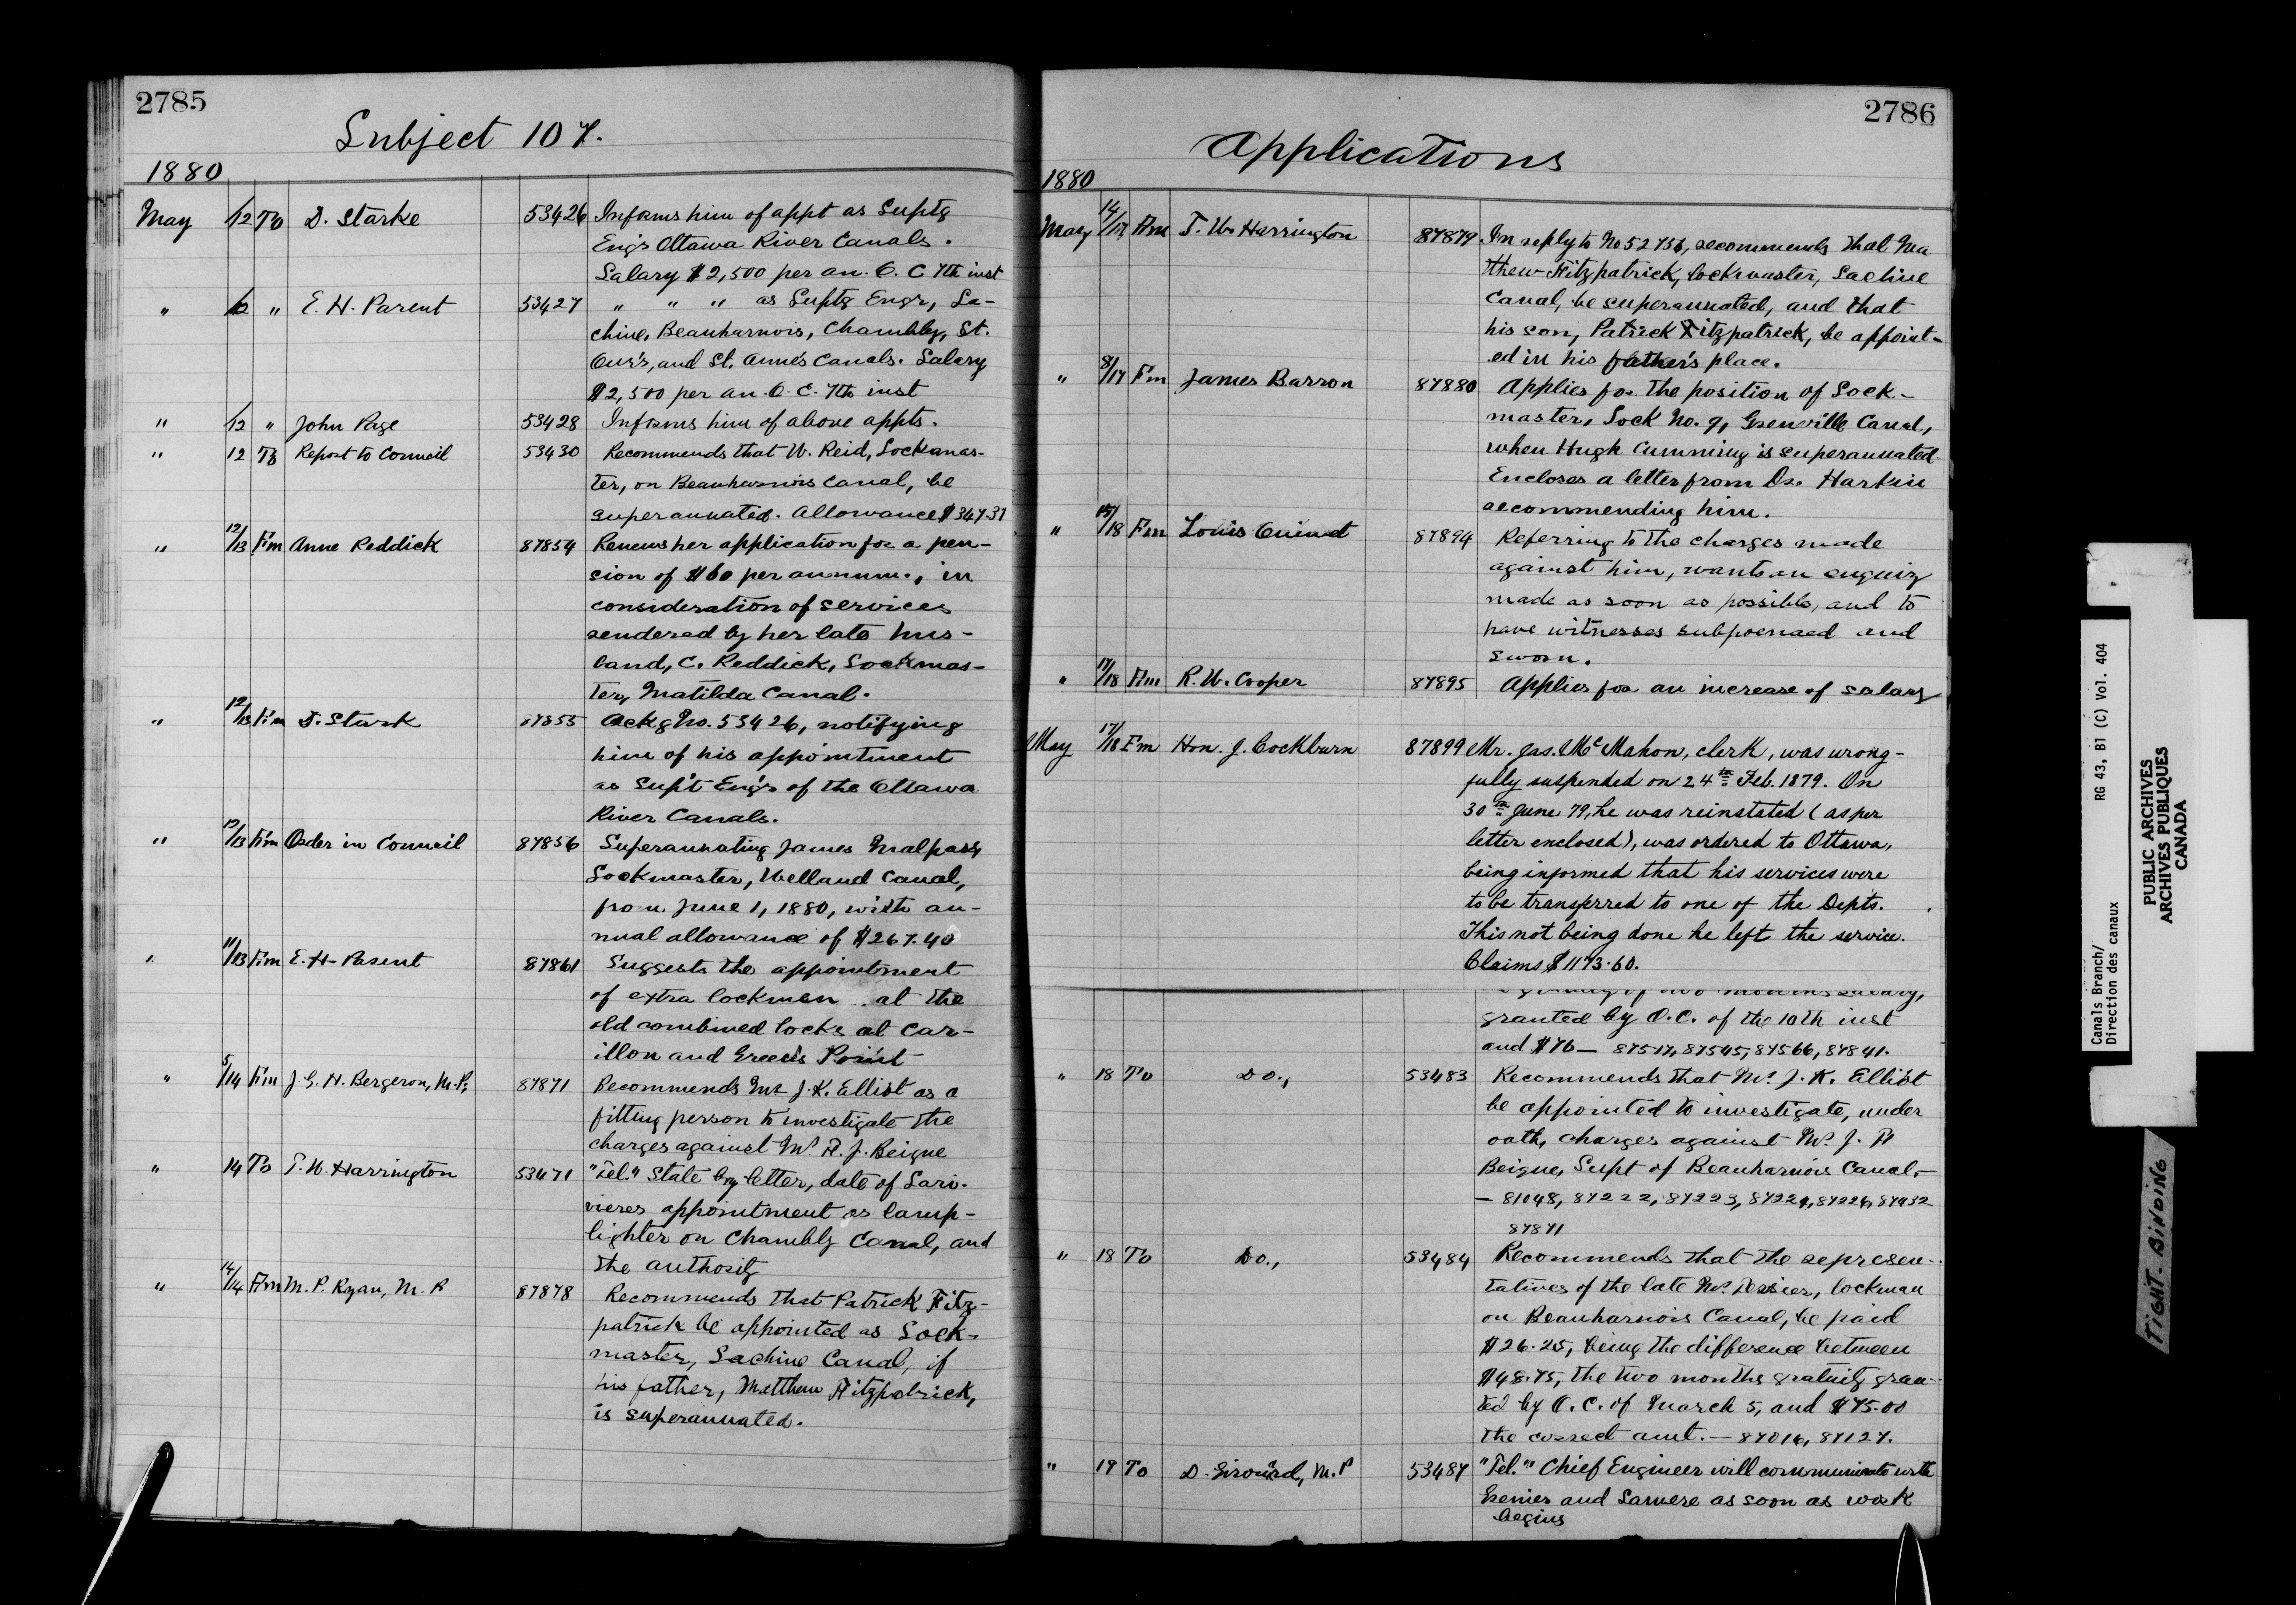 2785
Subject 107.
1880
May 12 To D. Starke 53426 Informs him of appt as Suptg
Eng'r Ottawa River Canals.
Salary $2,500 per an. O. C 7th inst
" 12 " E. H. Parent 53427 " " " as Suptg Engr, La-
chine, Beauharnois, Chambly, St.
Our's, and St. Anne's Canals. Salary
$2,500 per an. O. C. 7th inst
" 12 " John Page 53428 Informs him of above appts.
" 12 To Report to Council 53430 Recommends that W. Reid, Lockmas-
ter, on Beauharnois Canal, be
superannuated. Allowance $347.37
" 12/13 Fm Anne Reddick 87854 Renews her application for a pen-
sion of $60 per annum, in
consideration of services
rendered by her late hus-
band, C. Reddick, Lockmas-
ter, Matilda Canal.
" 12/13 Fm D. Stark 87855 Ackg No. 53426, notifying
him of his appointment
as Supt Eng'r of the Ottawa
River Canals.
" 12/13 Fm Order in Council 87856 Superannuating James Malpass
Lockmaster, Welland Canal,
from June 1, 1880, with an-
nual allowance of $267.40
" 11/13 Fm E. H. Parent 87861 Suggests the appointment
of extra lockmen at the
old combined locks at Car-
illon and Greece's Point
" 5/14 Fm J. G. H. Bergeron, M.P. 87871 Recommends Mr J. K. Elliot as a
fitting person to investigate the
charges against Mr. A. J. Beique
" 14 To T. W. Harrington 53471 "Tel." State by letter, date of Lari-
vieres appointment as lamp-
lighter on Chambly Canal, and
the authority
" 14/14 Fm M. P. Ryan, M. P 87878 Recommends that Patrick Fitz-
patrick be appointed as Lock-
master, Lachine Canal, if
his father, Matthew Fitzpatrick,
is superannuated.
2786
Applications
1880
May 14/17 Fm T. W. Harrington 87879 In reply to No 52756, recommends that Ma
tthew Fitzpatrick, lockmaster, Lachine
Canal, be superannuated, and that
his son, Patrick Fitzpatrick, be appoint-
ed in his father's place.
" 8/17 Fm James Barron 87880 Applies for the position of Lock-
master, Lock No. 9, Grenville Canal,
when Hugh Cumming is superannuated.
Encloses a letter from Dr. Harkin
recommending him.
" 15/18 Fm Louis 87894 Referring to the charges made
against him, wants an enquiry
made as soon as possible, and to
have witnesses subpoenaed and
sworn.
" 17/18 Fm R. W. Cooper 87895 Applies for an increase of salary
May 17/18 Fm Hon. J. Cockburn 87899 Mr. Jas. McMahon, clerk, was wrong-
fully suspended on 24th Feb. 1879. On
30th June 79, he was reinstated (as per
letter enclosed), was ordered to Ottawa,
being informed that his services were
to be transferred to one of the Depts.
This not being done he left the service.
Claims $1173.60.
granted by O.C. of the 10th inst
and $76 — 87517, 87545, 87566, 87841.
" 18 To Do., 53483 Recommends that Mr. J. K. Elliot
be appointed to investigate, under
oath, charges against Mr. J. A
Beique, Supt of Beauharnois Canal.
— 81048, 87222, 87223, 87224, 87226, 87432
87871
" 18 To Do., 53484 Recommends that the represen-
tatives of the late Mr. Tessier, lockman
on Beauharnois Canal, be paid
$26.25, being the difference between
$48.75, the two months gratuity gran-
ted by O. C. of March 5, and $75.00
the correct amt. — 87016, 87127.
" 19 To D. Girouard, M. P 53487 "Tel." Chief Engineer will communicate with
Grenier and Lamere as soon as work
begins
Canals Branch/
Direction des canaux
RG 43, B1 (C) Vol. 404
PUBLIC ARCHIVES
ARCHIVES PUBLIQUES
CANADA
TIGHT BINDING